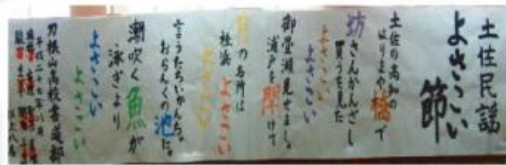 土佐民謡
よさこい節
土佐の高知の
はりまや橋で
坊さんかんざし
買うを見た
よさこい
よさこい
御畳瀬見せましょ
浦戸を開けて
月の名所は
桂浜
よさこい
よさこい
言うたちいかんちゃ
おらんくの池に
潮吹く魚が
泳ぎより
よさこい
よさこい
刀根山高校書道部